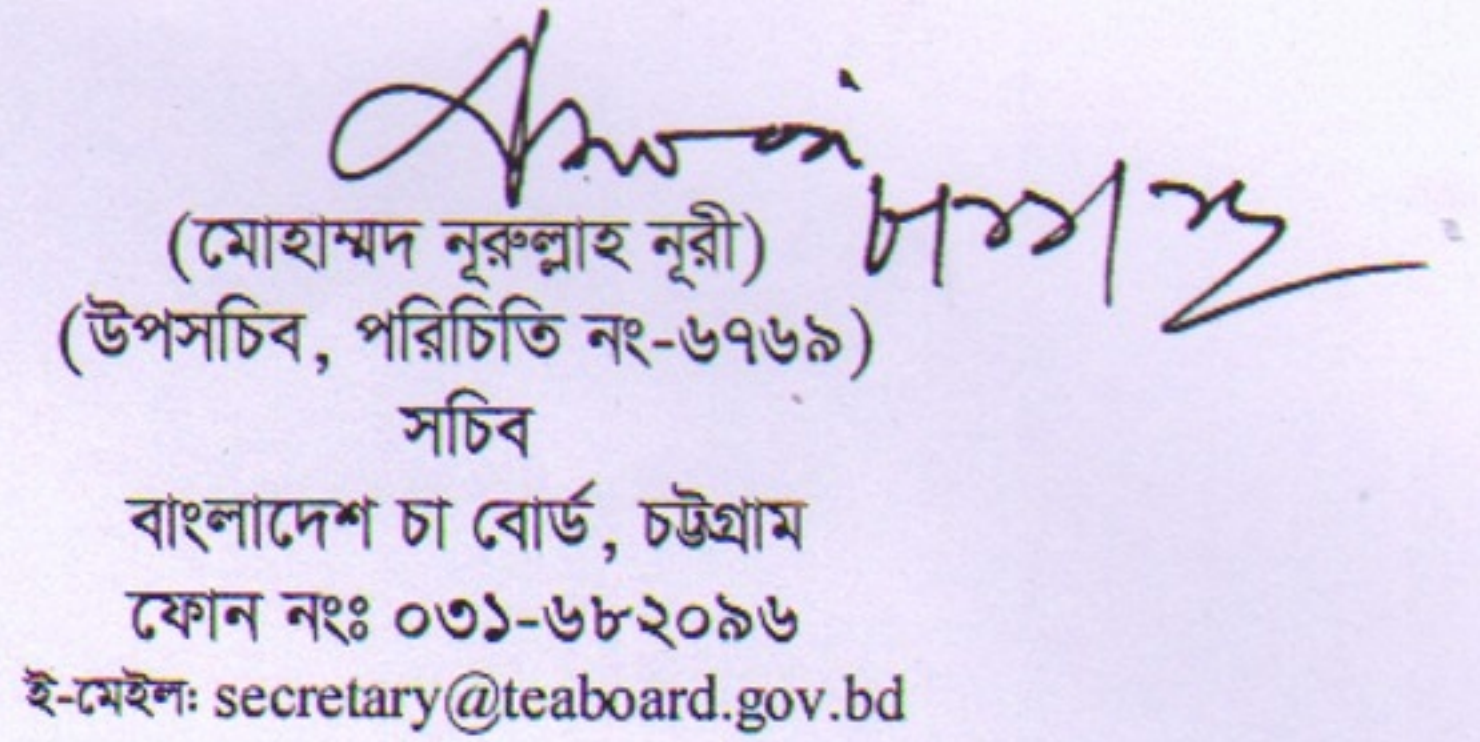 (মোহাম্মদ নূরুল্লাহ নূরী)
(উপসচিব, পরিচিতি নং-৬৭৬৯)
সচিব
বাংলাদেশ চা বোর্ড, চট্টগ্রাম
ফোন নংঃ ০৩১-৬৮২০৯৬
ই-মেইলঃ secretary@teaboard.gov.bd